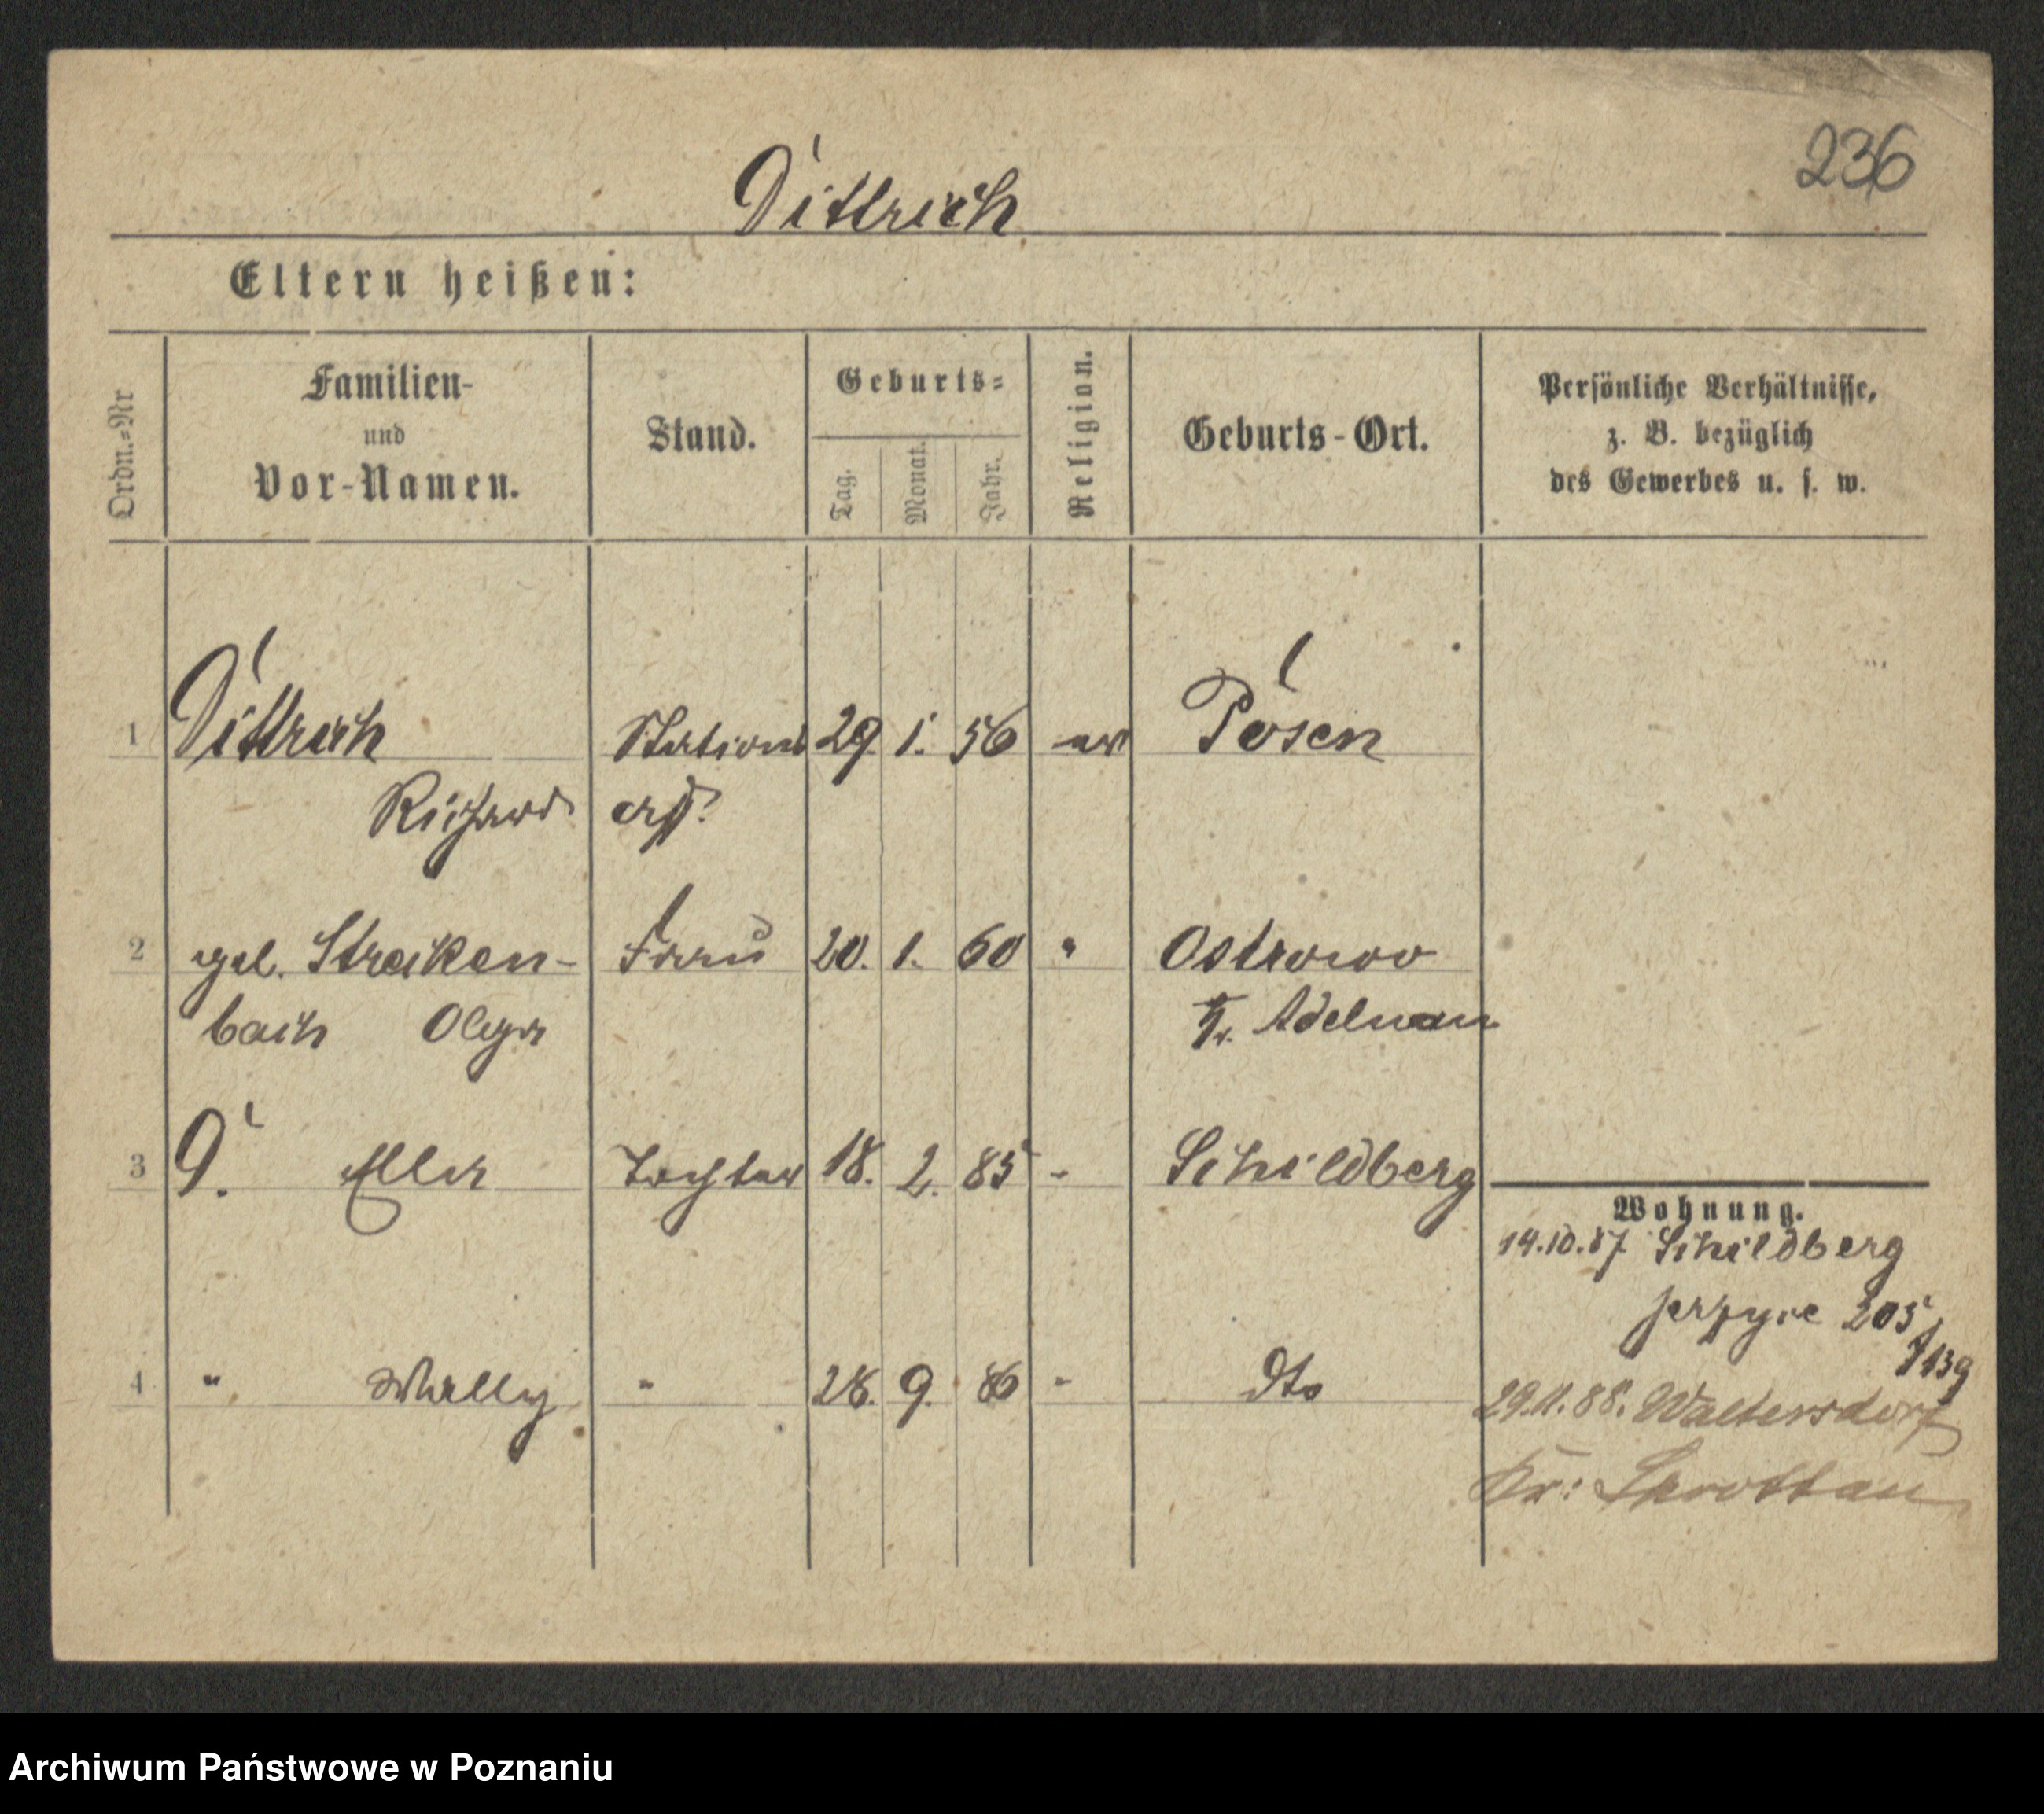 236
Dittrich
Eltern heißen:
Ordn.=Nr
Familien-
und
Vor-Namen.
Stand.
Geburts=
Tag.
Monat.
Jahr.
Religion.
Geburts-Ort.
Persönliche Verhältnisse,
z. B. bezüglich
des Gewerbes u. s. w.
1 Dittrich Stations 29. 1. 56 ev Posen
Richard
2 geb. Streiken- Frau 20. 1. 60 " Ostrowo
bach Olga Kr. Adelnau
3 D. Ella Tochter 18. 2. 85 " Schildberg
Wohnung.
14.10.87 Schildberg
205/
139
4 " Wally " 28. 9. 86 " dto
29.11.88. Waltersdorf
Kr: Sprottau
Archiwum Państwowe w Poznaniu